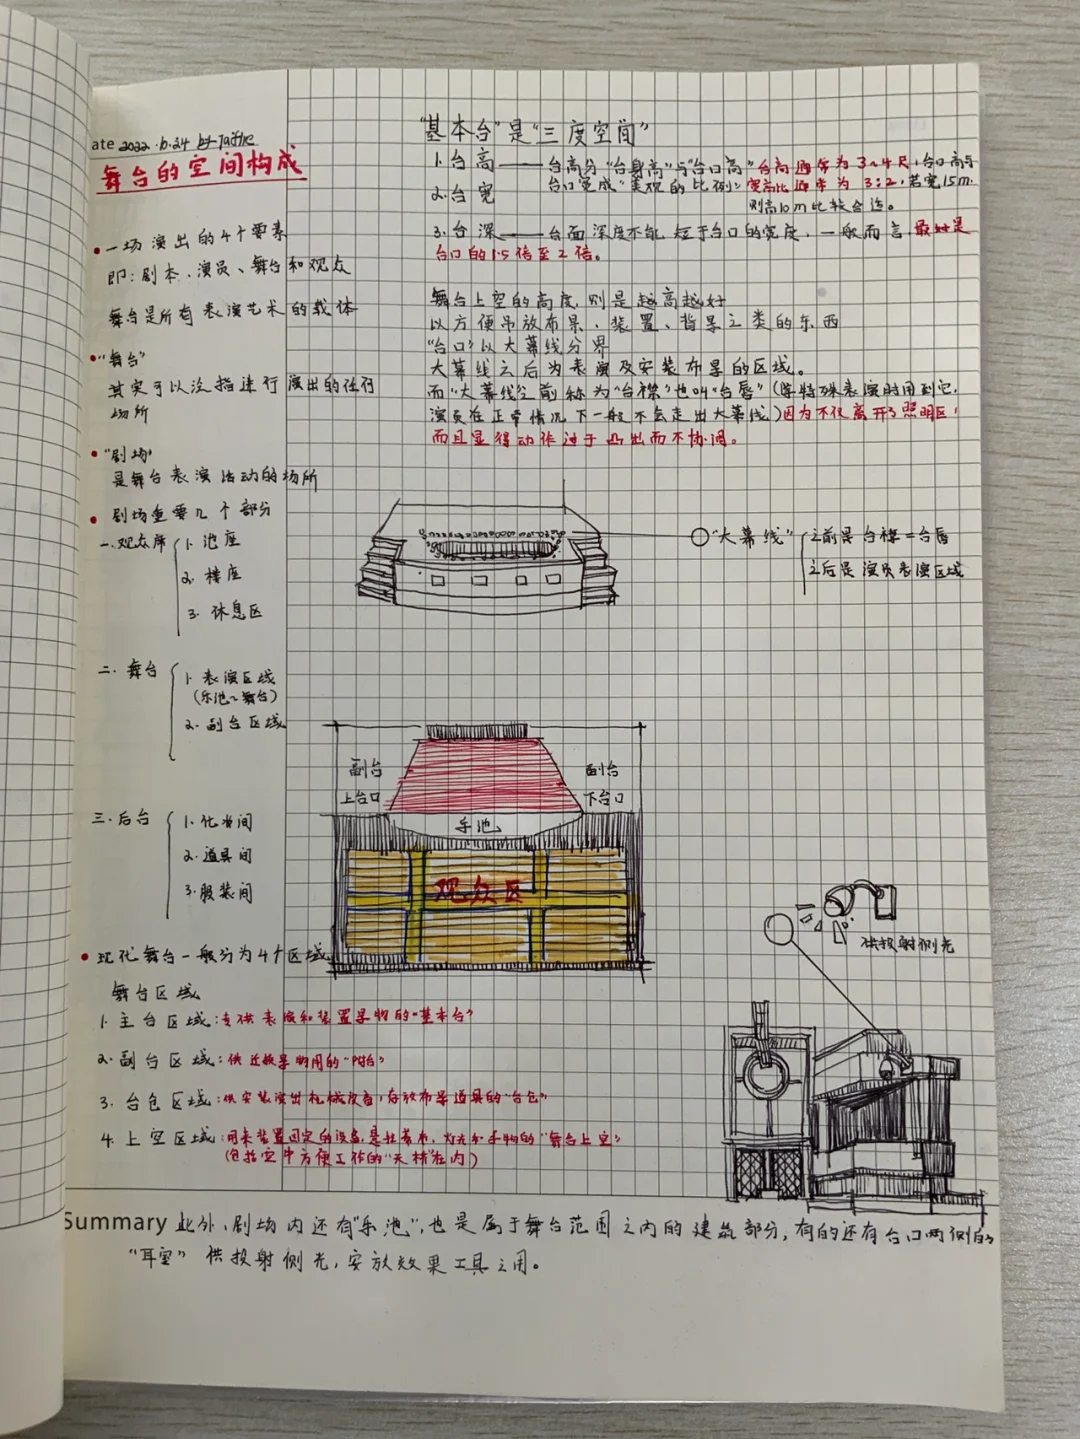 ate 2022.6.24 by
舞台的空间构成
• 一场演出的4个要素
即:剧本、演员、舞台和观众
舞台是所有表演艺术的载体
• “舞台”
其实可以泛指进行演出的任何
场所
• “剧场”
是舞台表演活动的场所
• 剧场重要几个部分
一.观众席
1. 池座
2. 楼座
3. 休息区
二.舞台
1. 表演区域
(乐池~舞台)
2. 副台区域
三.后台
1. 化妆间
2. 道具间
3. 服装间
• 现代舞台一般分为4个区域
舞台区域
1. 主台区域:专供表演和装置景物的“基本台”
2. 副台区域:供迁换景物用的“附台”
3. 台仓区域:供安装演出机械设备,存放布景道具的“台仓”
4. 上空区域:用来装置固定的设备,悬挂幕布、灯光和景物的“舞台上空”
(包括空中方便工作的“天桥”在内)
“基本台”是“三度空间”
1. 台高 —— 台高分“台身高”与“台口高”台高通常为3~4尺,台口高与
2. 台宽 台口宽成“美观的比例”:宽高比通常为3:2,若宽15m.
则高10m比较合适。
3. 台深 —— 台面深度不能短于台口的宽度,一般而言,最好是
台口的1.5倍至2倍。
舞台上空的高度,则是越高越好
以方便吊放布景、装置、背景之类的东西
“台口”以大幕线分界
大幕线之后为表演及安装布景的区域。
而“大幕线”之前称为“台襟”也叫“台唇”(等特殊表演时用到它,
演员在正常情况下一般不会走出大幕线)因为不仅离开了照明区,
而且显得动作过于凸出而不协调。
“大幕线”
之前是台襟=台唇
之后是演员表演区域
副台
上台口
副台
下台口
乐池
观众区
供投射侧光
Summary 此外,剧场内还有“乐池”,也是属于舞台范围之内的建筑部分,有的还有台口两侧的
“耳室”供投射侧光,安放效果工具之用。